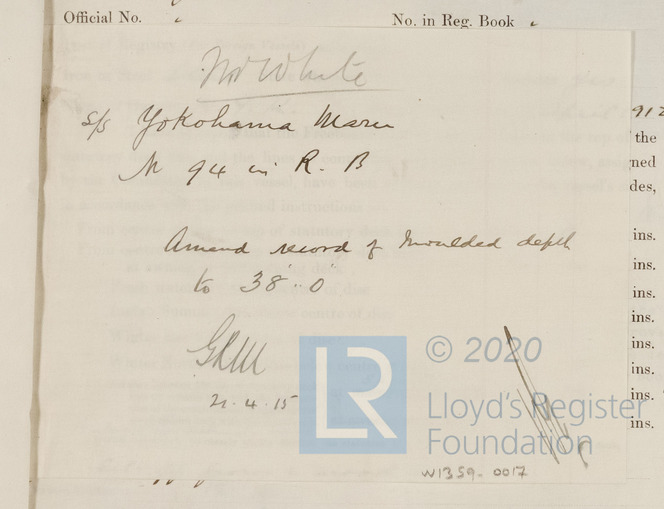 Official No.
No. in Reg. Book
Mr White
s/s Yokohama Maru
94 in R. B
Amend record of Moulded depth
to 38'.. 0"
4. 15
© 2020
LR
Lloyd's Register
Foundation
W1359-0017
912
the
ned
des,
ins.
ins.
ins.
ins.
ins.
ins.
ins.
ins.